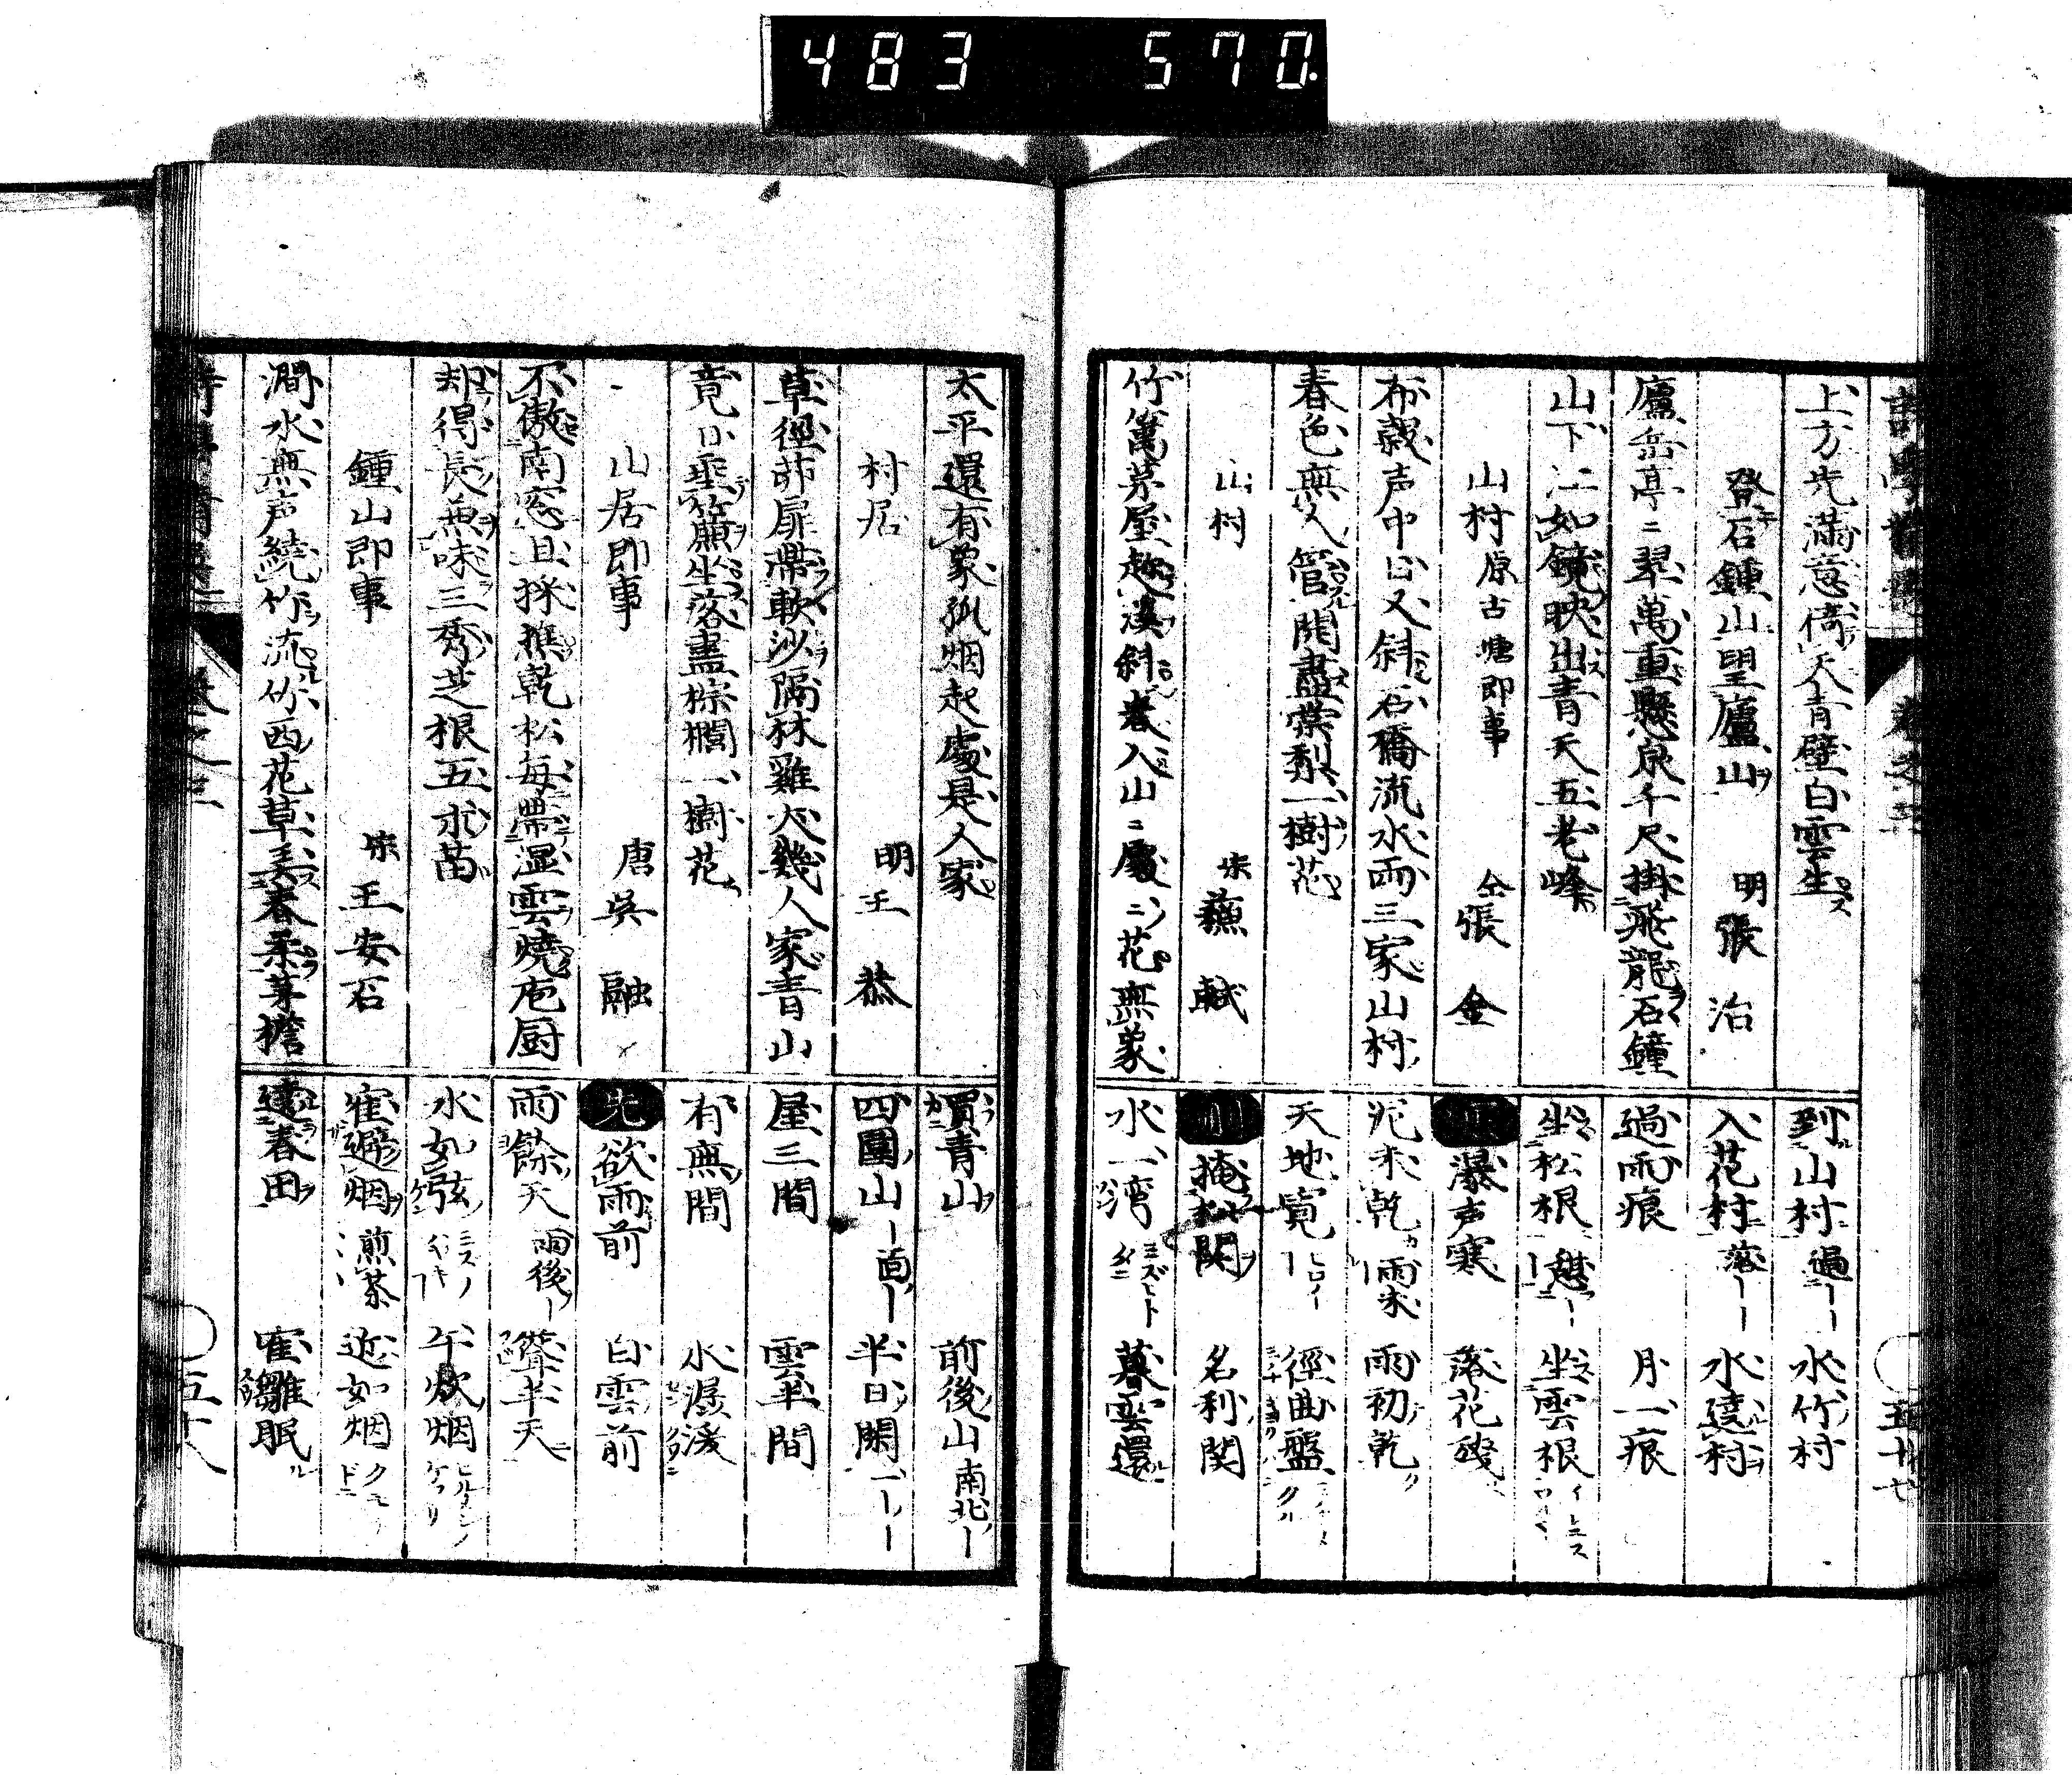 483 570.
上方先滿意倚天青壁白雲生
登石鍾山望廬山 明 張治
廬岳亭ニ翠萬重懸泉千尺掛飛龍石鐘
山下江如鏡映出青天五老峰
山村 原古塘即事 仝 張金
布穀声中日又斜石橋流水兩三家山村
春色無人管開盡棠梨一樹花
山村 宋 蘇軾
竹篱茅屋趂溪斜春入山ニ處ニ花無象
到山村 過ーー 水竹村
入花村 落ーー 水遶村
過雨痕 月一痕
坐松根 憩ーー 坐雲根
瀑声寒 落花残
泥未乾 雨未 雨初乾
天地寛 徑曲盤
掩松関 名利関
水一湾 暮雲還
五十七
太平還有象孤烟起處是人家
村居 明 王恭
草徑茆扉帶軟沙隔林雞犬幾人家青山
竟日垂簾坐落盡棕櫚一樹花
山居即事 唐 吳融
不傲南窓且採樵乾松毎帶湿雲燒庖厨
却得長兼味三秀芝根五朮苗
鍾山即事 宋 王安石
澗水無声繞竹流竹西花草美春柔茅檐
買青山 前後山 南北ー
四圍山 ー面ー 半日閑 一ーー
屋三間 雲半間
有無間 水潺湲
先 欲雨前 白雲前
雨餘天 雨後ー 聳半天
水如弦 午炊烟
寉避烟 煎茶 近如烟
遶春田 寉雛眠
五十八